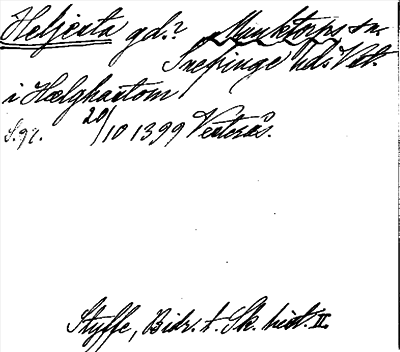 Heljesta gd.? Munktorps sn.
Snefringe hd. Vstm.
i Hælghastom
S.g?. 20/10 1399 Vesterås.
Styffe, Bidr. t. Sk. hist. II.